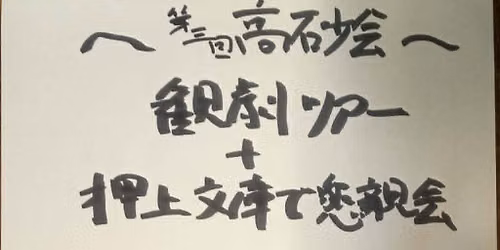 〜第三回高砂会〜
観劇ツアー
+
押上文庫で懇親会